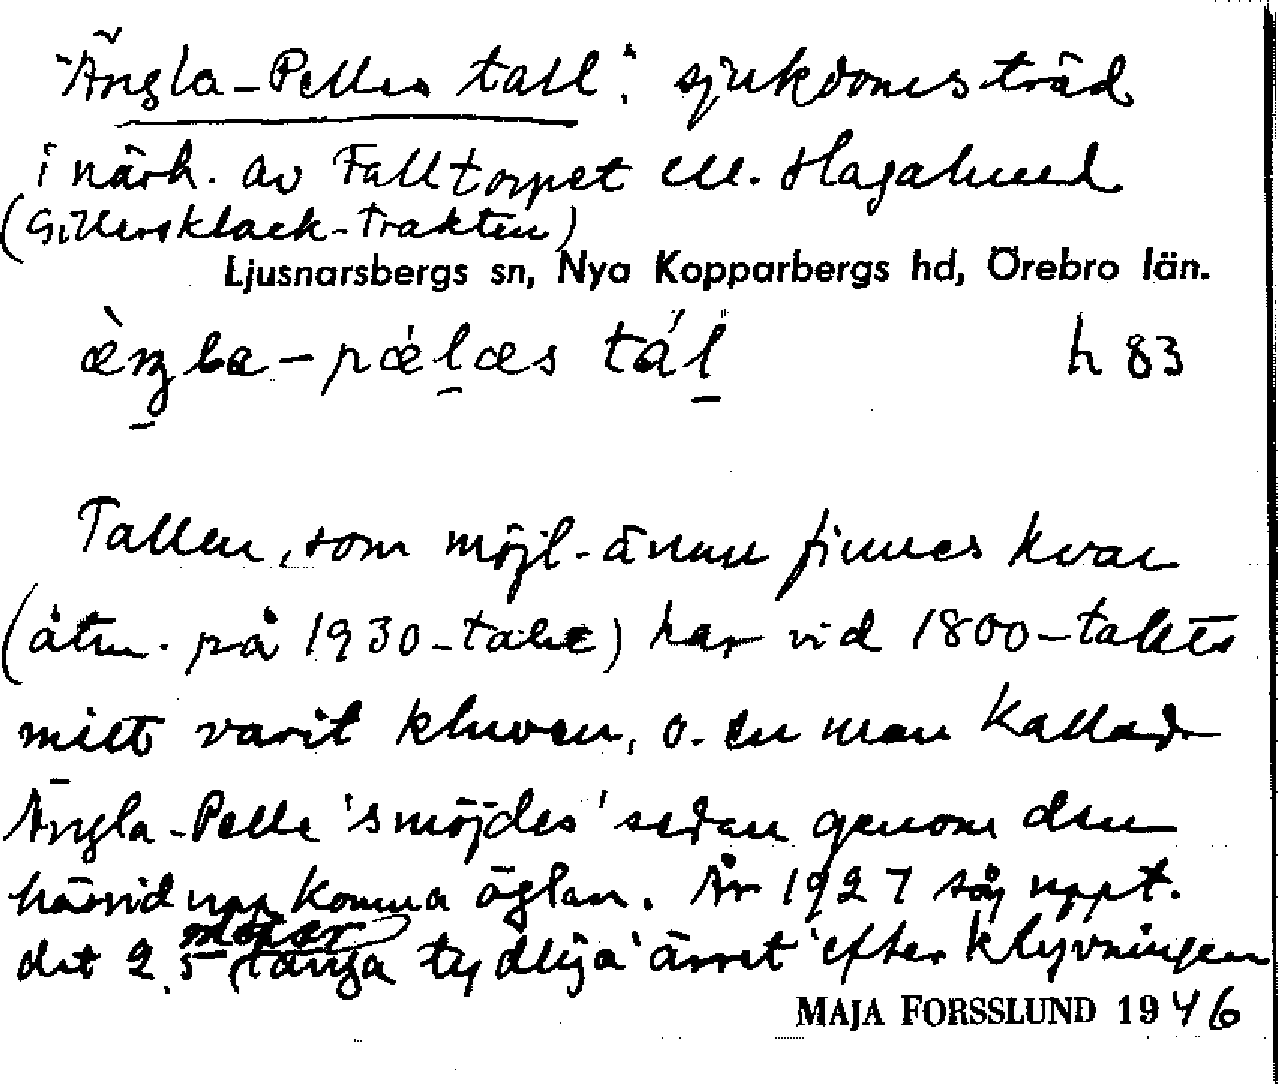 "Ängla-Pelles tall": sjukdomsträd
i närh. av Falltorpet ell. Hagalund
(Gillersklack-trakten)
Ljusnarsbergs sn, Nya Kopparbergs hd, Örebro län.
h 83
Tallen, som möjl. ännu finnes kvar
(åtm. på 1930-talet) har vid 1800-talets
mitt varit kluven, o. en man kallad
Ängla-Pelle 'smöjdes' sedan genom den
härvid uppkomna öglan. År 1927 såg uppt.
det 2,5 meter långa tydliga 'ärret' efter klyvningen
MAJA FORSSLUND 1946